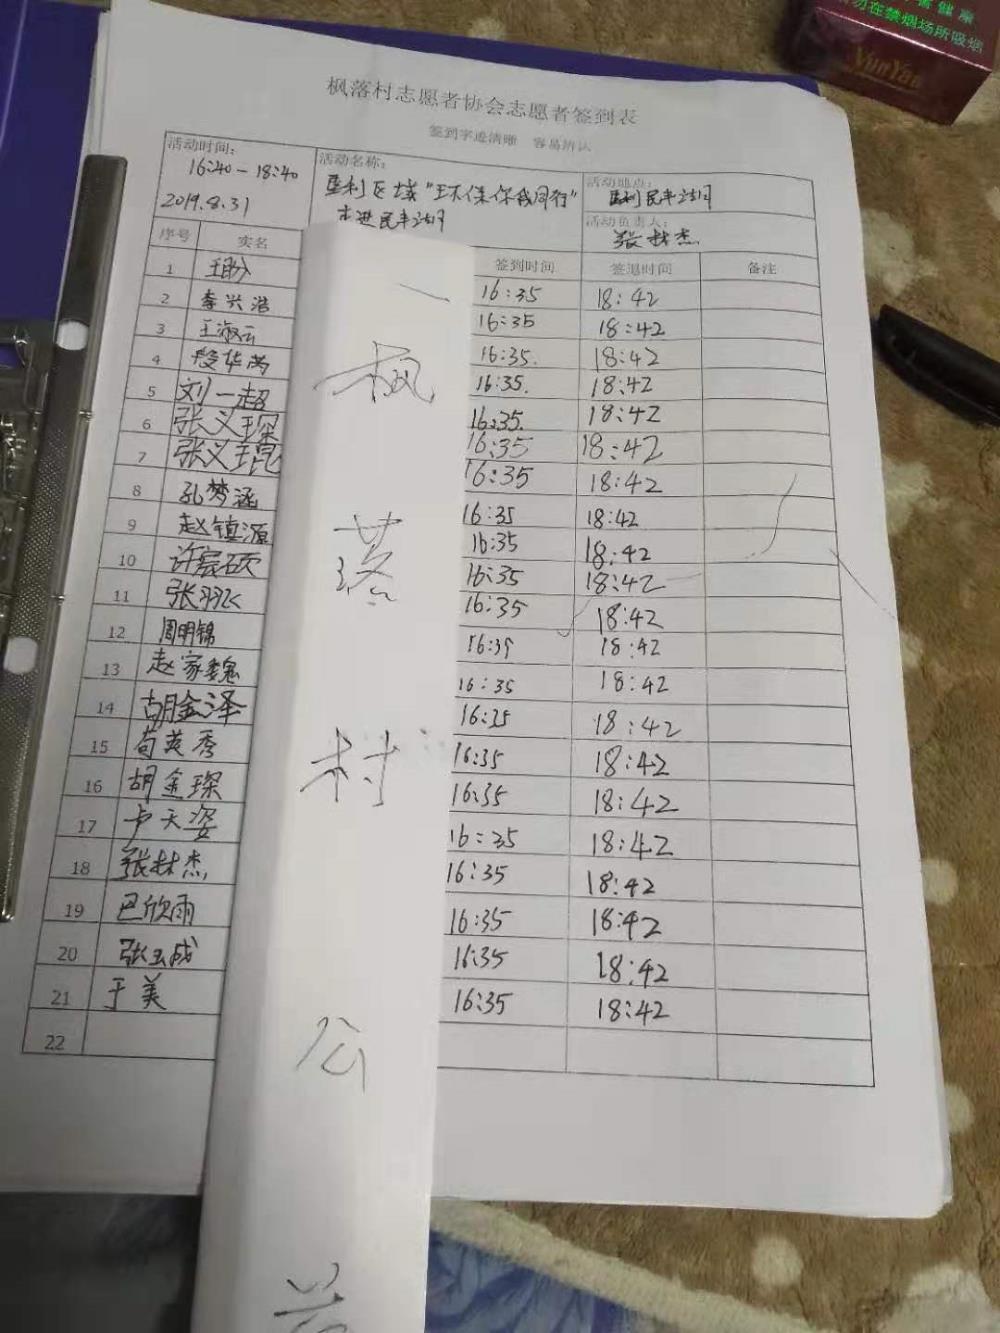 康
勿在禁烟场所吸烟
YunYan
枫落村志愿者协会志愿者签到表
签到字迹清晰 容易辨认
活动时间： 活动名称： 活动地点：
16:40-18:40 垦利区域“环保你我同行” 垦利民丰湖
2019.8.31 走进民丰湖 活动负责人：
张林杰
序号 实名 签到时间 签退时间 备注
1 16:35 18:42
2 李兴浩 16:35 18:42
3 王淑云 16:35. 18:42
4 段华芮 16:35. 18:42
5 刘一超 16:35. 18:42
6 张义琛 16:35 18:42
7 张义琨 16:35 18:42
8 孔梦涵 16:35 18:42
9 赵镇源 16:35 18:42
10 许宸硕 16:35 18:42
11 张羽飞 16:35 18:42
12 周明锦 16:35 18:42
13 赵家魏 16:35 18:42
14 胡金泽 16:35 18:42
15 苟英秀 16:35 18:42
16 胡金琛 16:35 18:42
17 卢天姿 16:35 18:42
18 张林杰 16:35 18:42
19 巴欣雨 16:35 18:42
20 张玉成 16:35 18:42
21 于美 16:35 18:42
22
一
枫
落
村
公
益